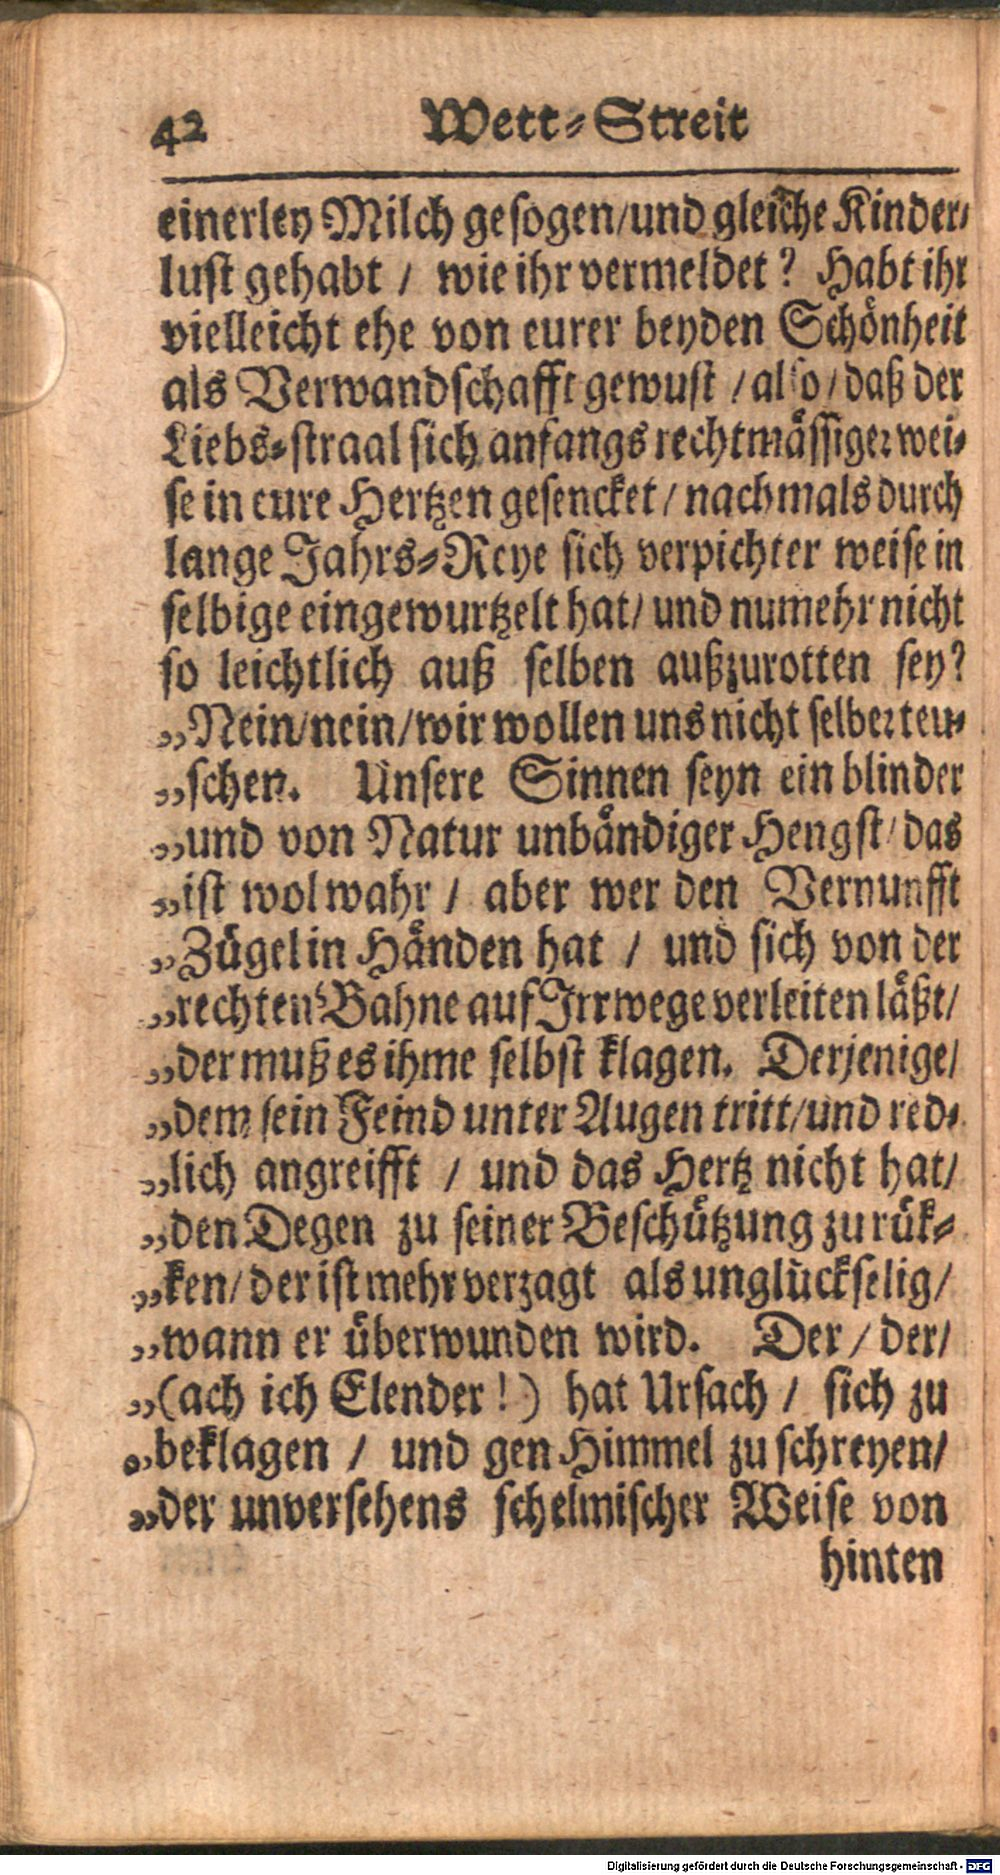 42 Wett-Streit
einerley Milch gesogen/und gleiche Kinder-
lust gehabt / wie ihr vermeldet? Habt ihr
vielleicht ehe von eurer beyden Schönheit
als Verwandschafft gewust / also / daß der
Liebs-straal sich anfangs rechtmässiger wei-
se in eure Hertzen gesencket / nachmals durch
lange Jahrs-Reye sich verpichter weise in
selbige eingewurtzelt hat/ und numehr nicht
so leichtlich auß selben außzurotten sey?
„Nein/nein/wir wollen uns nicht selber teu-
„schen. Unsere Sinnen seyn ein blinder
„und von Natur unbändiger Hengst/ das
„ist wol wahr / aber wer den Vernunfft
„Zügel in Händen hat / und sich von der
„rechten Bahne auf Irrwege verleiten läßt/
„der muß es ihme selbst klagen. Derjenige/
„dem sein Feind unter Augen tritt/und red-
„lich angreifft / und das Hertz nicht hat/
„den Degen zu seiner Beschützung zu rük-
„ken/ der ist mehr verzagt als unglückselig/
„wann er überwunden wird. Der / der/
„(ach ich Elender!) hat Ursach / sich zu
„beklagen / und gen Himmel zu schreyen/
„der unversehens schelmischer Weise von
hinten
Digitalisierung gefördert durch die Deutsche Forschungsgemeinschaft - DFG